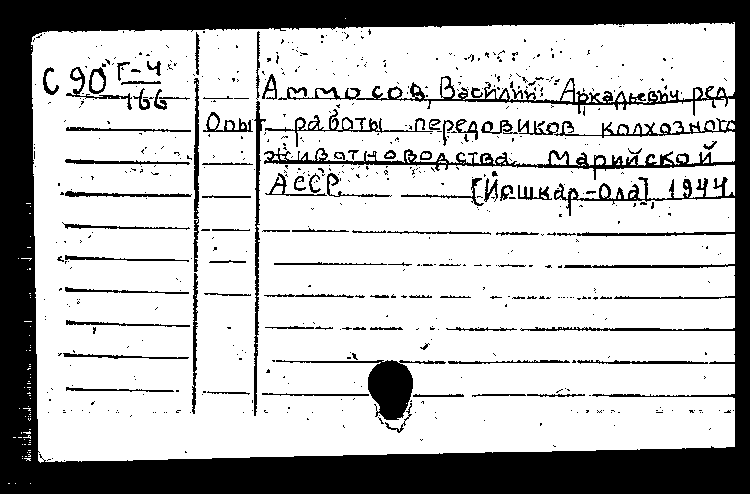 С 90 Г-4
166
Аммосов, Василий Аркадьевич ред.
Опыт работы передовиков колхозного
животноводства Марийской
АССР. [Йошкар-Ола], 1944.